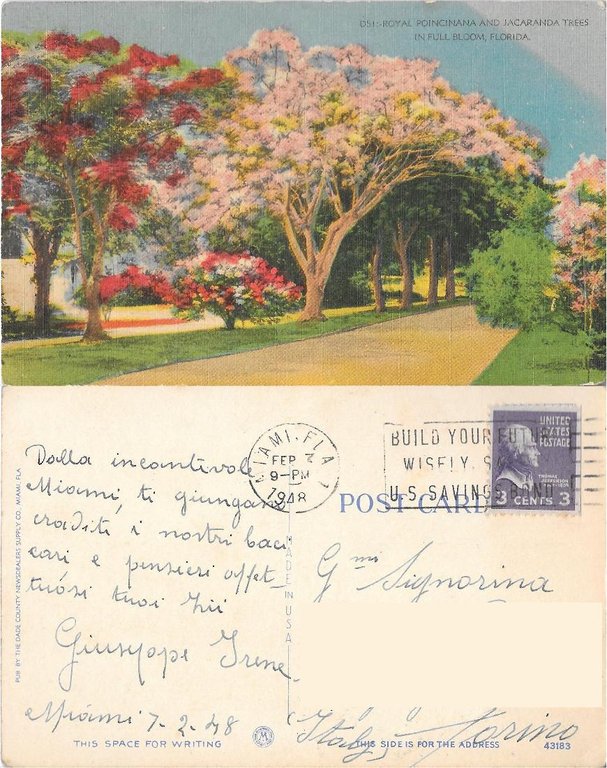 D51:-ROYAL POINCIANA AND JACARANDA TREES
IN FULL BLOOM, FLORIDA.
Dalla incantivole
Miami, ti giungano
graditi i nostri baci
cari e pensieri affet-
tuosi tuoi zii
Giuseppe Irene
Miami 7-2-48
THIS SPACE FOR WRITING
PUB. BY THE DADE COUNTY NEWSDEALERS SUPPLY CO., MIAMI, FLA.
MADE IN USA
MIAMI, FLA.
FEB 7
9-PM
1948
BUILD YOUR FUTURE
WISELY, S
U.S. SAVINGS BOND
UNITED
STATES
POSTAGE
THOMAS
JEFFERSON
3 CENTS 3
POST CARD
G.mi Signorina
Italy Torino
THIS SIDE IS FOR THE ADDRESS
43183